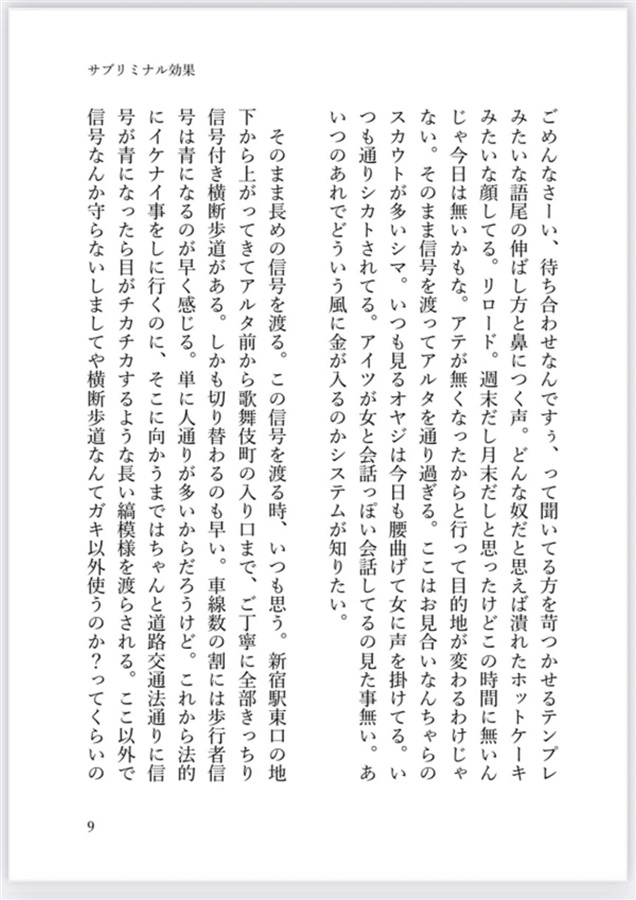 サブリミナル効果
ごめんなさーい、待ち合わせなんですぅ、って聞いてる方を苛つかせるテンプレ
みたいな語尾の伸ばし方と鼻につく声。どんな奴だと思えば潰れたホットケーキ
みたいな顔してる。リロード。週末だし月末だしと思ったけどこの時間に無いん
じゃ今日は無いかもな。アテが無くなったからと行って目的地が変わるわけじゃ
ない。そのまま信号を渡ってアルタを通り過ぎる。ここはお見合いなんちゃらの
スカウトが多いシマ。いつも見るオヤジは今日も腰曲げて女に声を掛けてる。い
つも通りシカトされてる。アイツが女と会話っぽい会話してるの見た事無い。あ
いつのあれでどういう風に金が入るのかシステムが知りたい。
そのまま長めの信号を渡る。この信号を渡る時、いつも思う。新宿駅東口の地
下から上がってきてアルタ前から歌舞伎町の入り口まで、ご丁寧に全部きっちり
信号付き横断歩道がある。しかも切り替わるのも早い。車線数の割には歩行者信
号は青になるのが早く感じる。単に人通りが多いからだろうけど。これから法的
にイケナイ事をしに行くのに、そこに向かうまではちゃんと道路交通法通りに信
号が青になったら目がチカチカするような長い縞模様を渡らされる。ここ以外で
信号なんか守らないしましてや横断歩道なんてガキ以外使うのか？ってくらいの
9